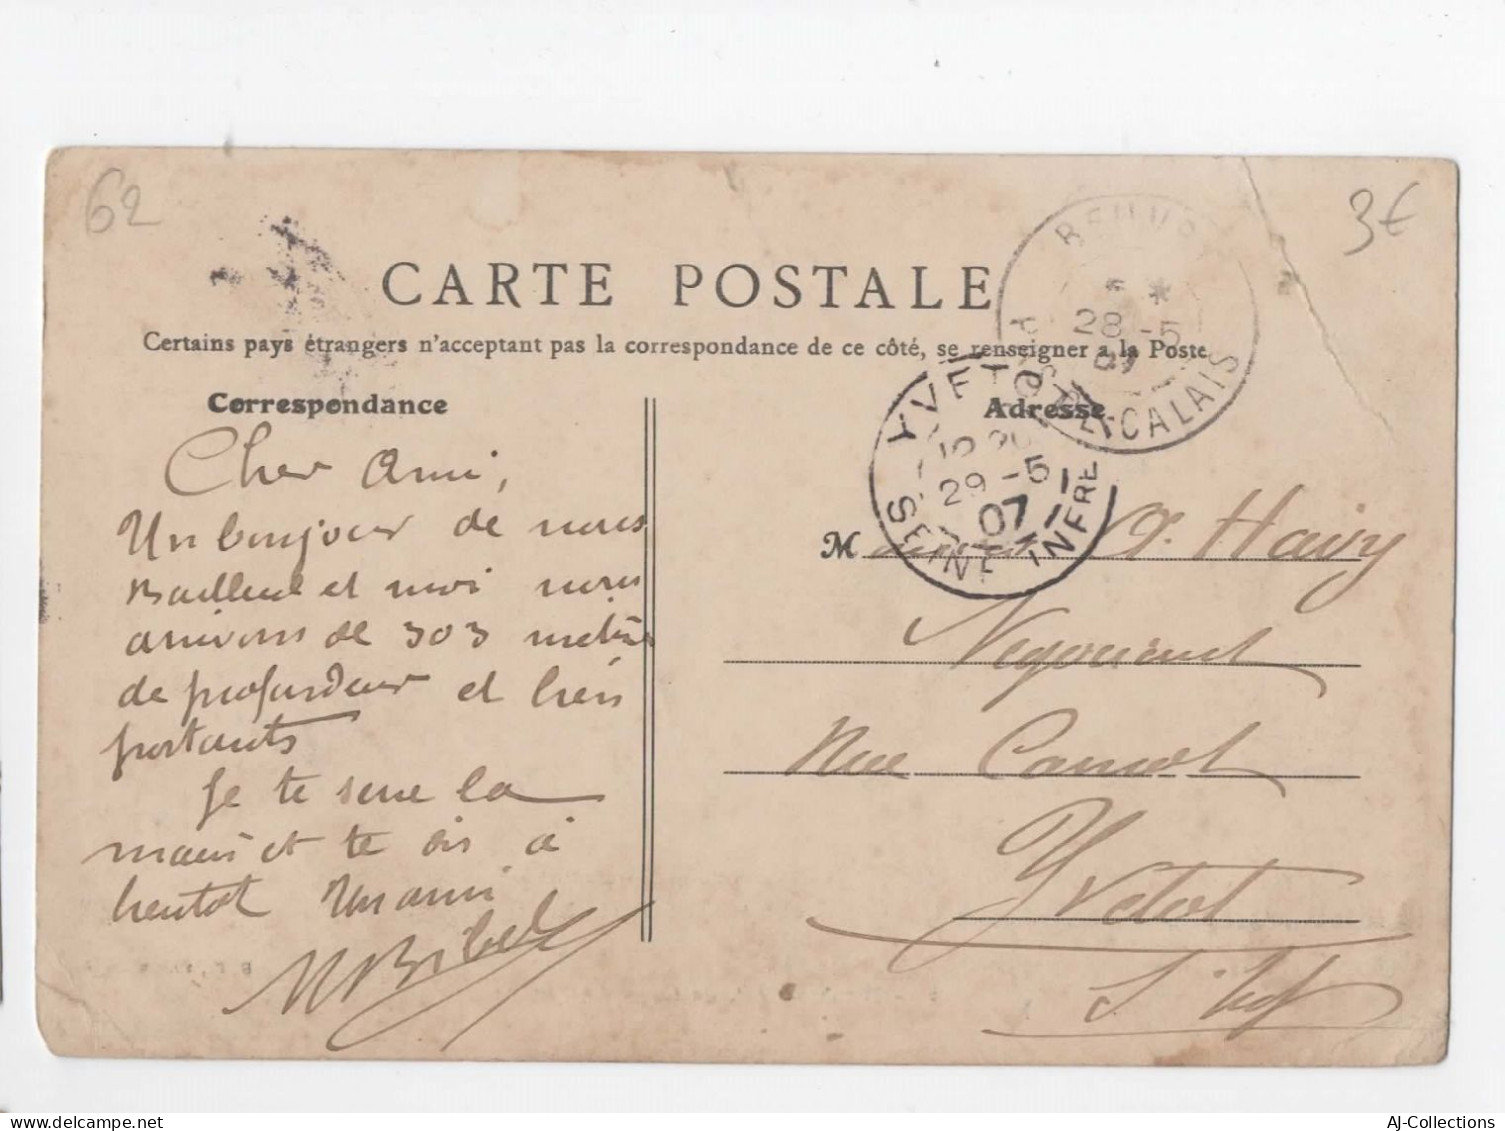 62
3€
CARTE POSTALE
Certains pays étrangers n'acceptant pas la correspondance de ce côté, se renseigner a la Poste
Correspondance
Adresse
28-5
07
PAS-DE-CALAIS
YVETOT
29-5
07
SEINE INFRE
Cher Ami,
Un bonjour de nous
Bailleul et moi nous
arrivons de 303 mètres
de profondeur et bien
portants
Je te serre la
main et te dis à
bientôt Ton ami
M
Négociant
Rue Carnot
Yvetot
S. Inf
AJ-Collections